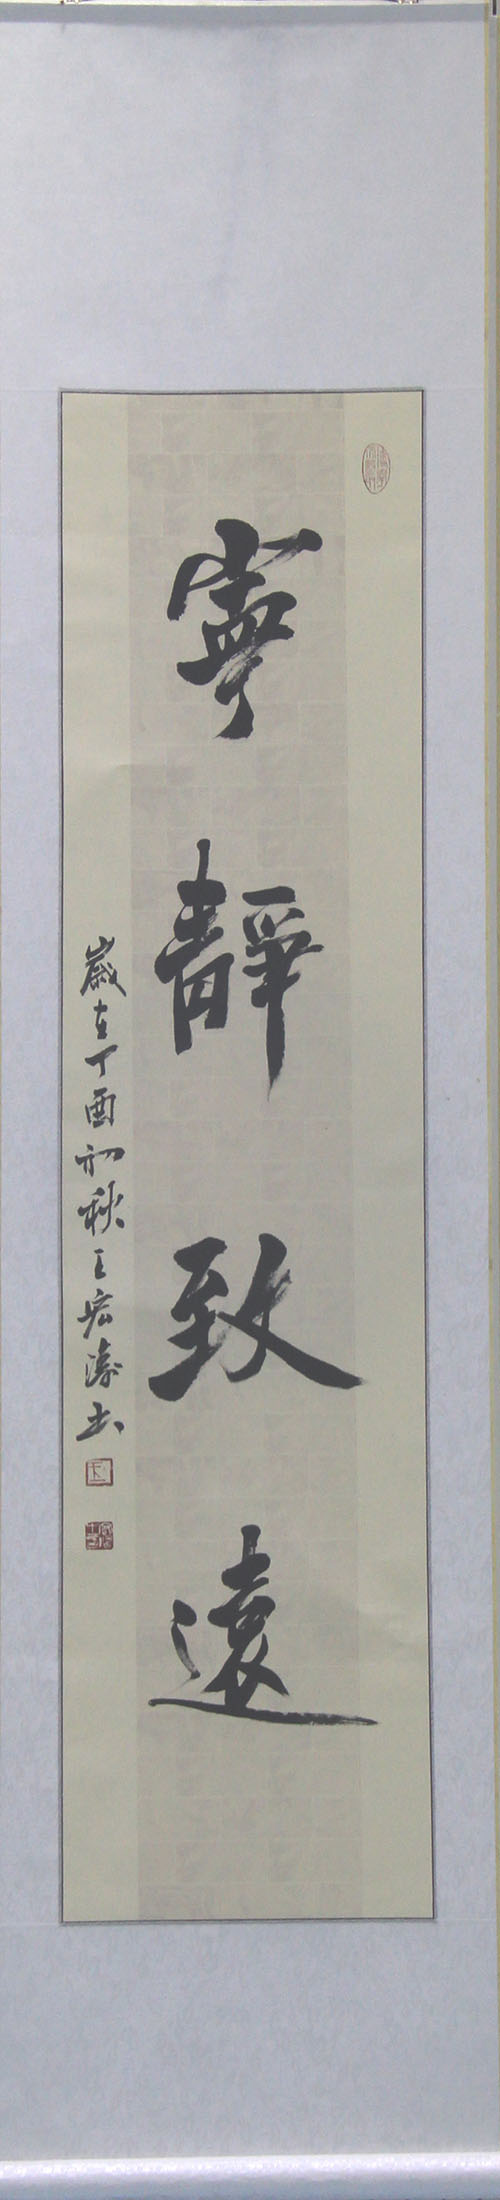 寧靜致遠
歲在丁酉初秋王宏濤书